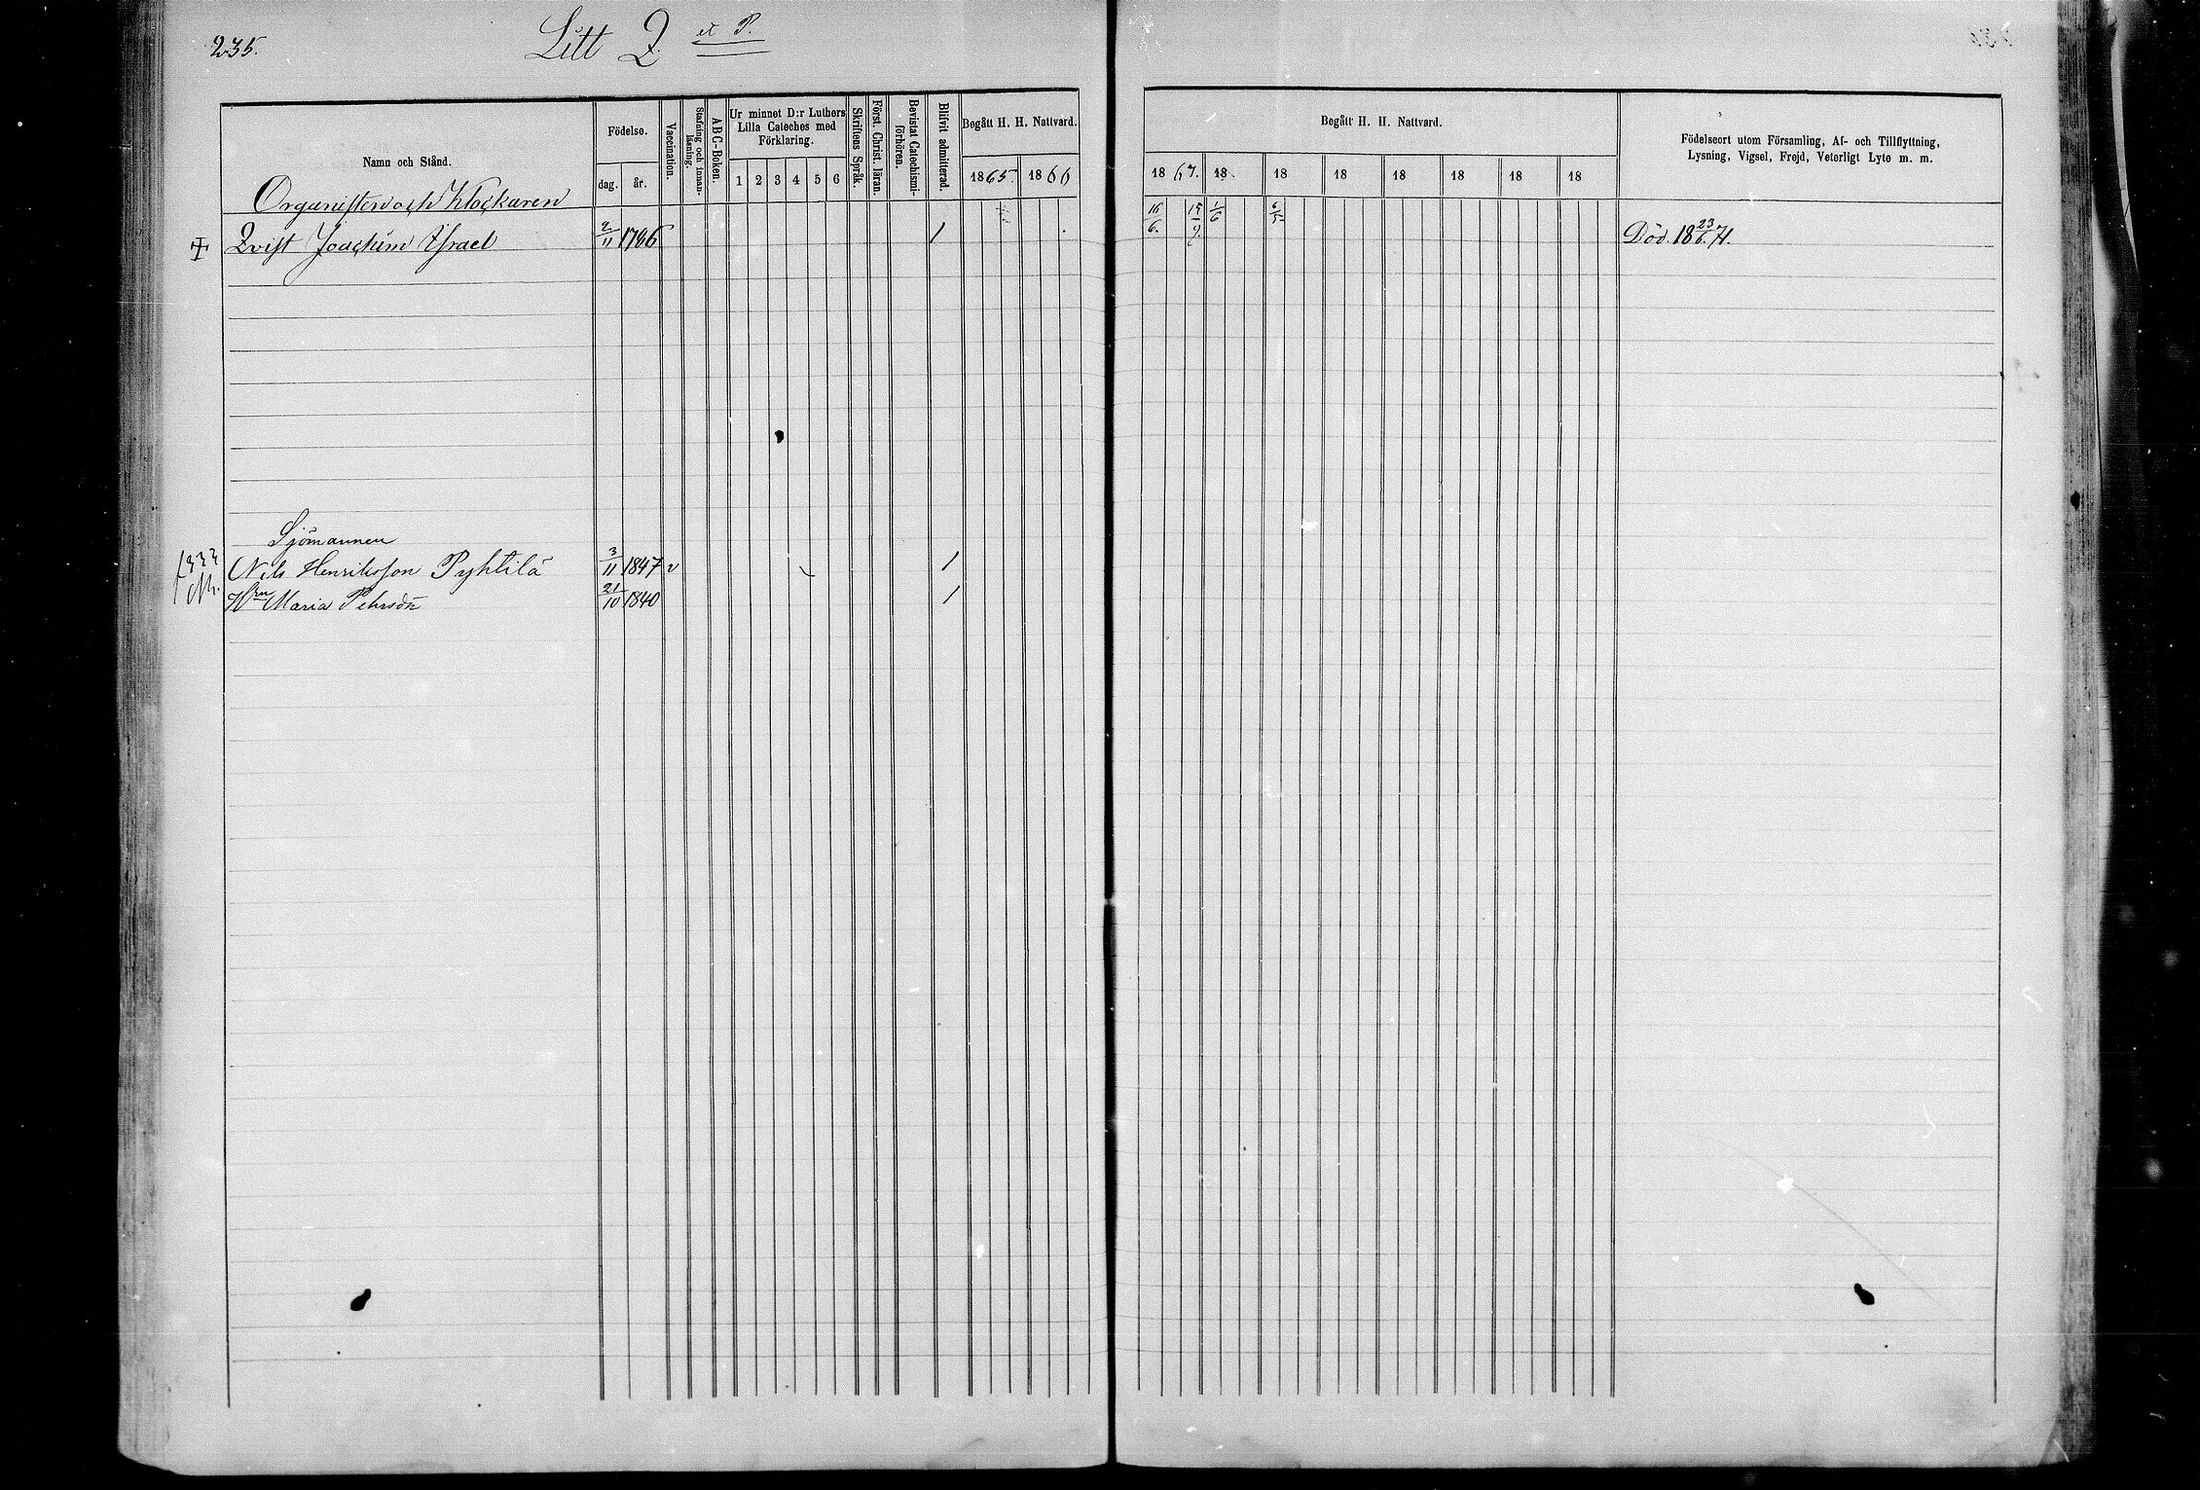 235.
Litt Q et P.
Namn och Stånd.
Födelse.
dag. år.
Vaccination.
Stafning och innan-läsning.
ABC-Boken.
Ur minnet D:r Luthers Lilla Cateches med Förklaring.
1 2 3 4 5 6
Skriftens Språk.
Först. Christ. läran.
Bevistat Catechismi-förhören.
Blifvit admitterad.
Begått H. H. Nattvard.
1865. 1866
Begått H. H. Nattvard.
1867. 18 18 18 18 18 18 18
Födelseort utom Församling, Af- och Tillflyttning,
Lysning, Vigsel, Frejd, Veterligt Lyte m. m.
Organisten och Klockaren
Qvist Joachim Israel 2/11 1786 1 16/6. 1/6 6/5 Död. 18 23/6. 71.
Sjömannen
333 Nils Henriksson Pyhtilä 3/11 1847 v 1
M. H:ru Maria Pehrsdr 21/10 1840 1